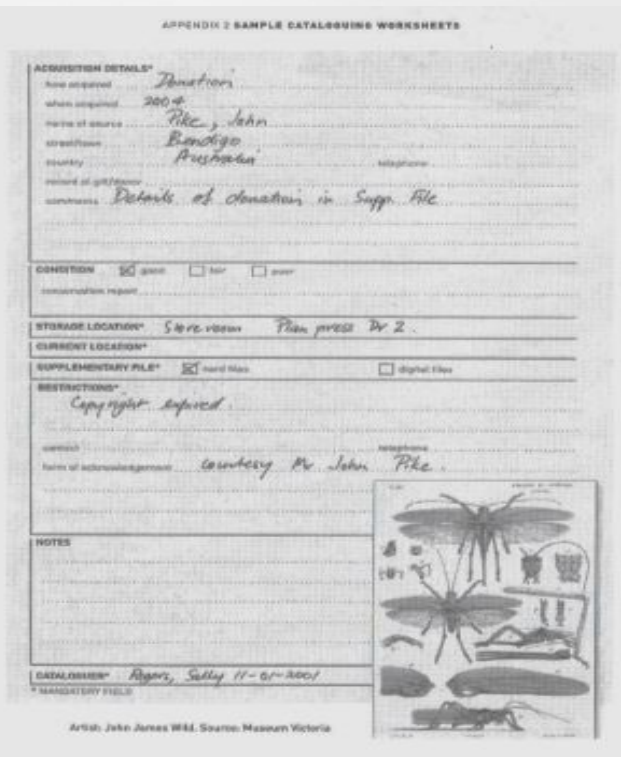 APPENDIX 2 SAMPLE CATALOGUING WORKSHEETS
ACQUISITION DETAILS*
how acquired Donation
when acquired 2004
name of source Pike, John
street/town Bendigo
country Australia telephone
record of gift/donor
comments Details of donation in Supp. File
CONDITION good fair poor
conservation report
STORAGE LOCATION* Store room Plan press Dr 2.
CURRENT LOCATION*
SUPPLEMENTARY FILE* hard files digital files
RESTRICTIONS*
Copyright expired.
contact telephone
form of acknowledgement courtesy Mr John Pike.
NOTES
CATALOGUER* Rogers, Sally 11-01-2001
* MANDATORY FIELD
Artist: John James Wild. Source: Museum Victoria